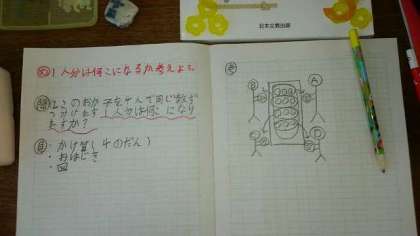 日本文教出版
め 1人分は何こになるか考えよう。
問 12このおかしを4人で同じ数ず
つ分けます。1人分は何こになり
ますか?
自・かけ算(4のだん)
・おはじき
・図
考
B A
D